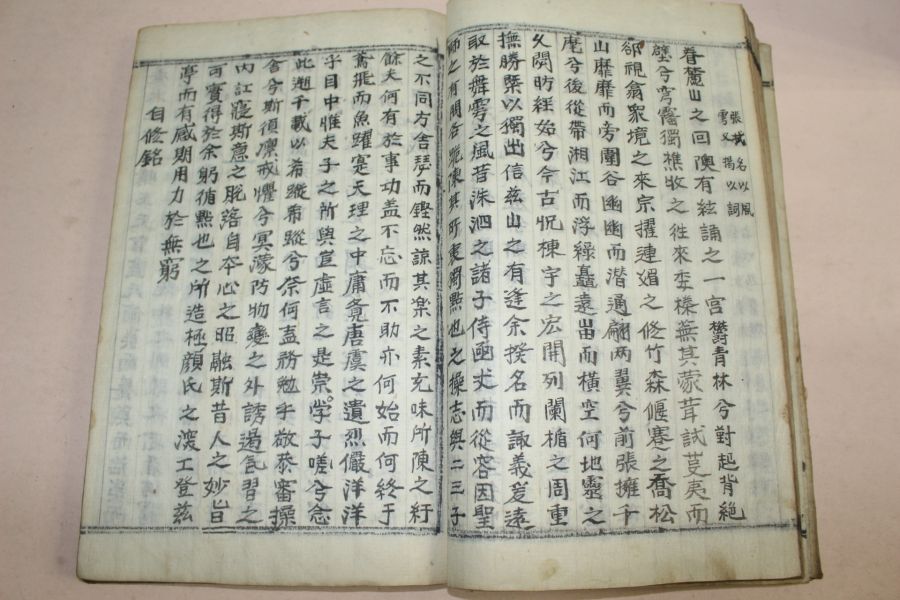 張栻名以風
雩又揭以詞
眷麓山之回隩有絃誦之一宮鬱青林兮對起背絶
壁兮穹窿獨樵牧之徃來委榛蕪其蒙茸試芟夷而
却視翕衆境之來宗擢連娟之脩竹森偃蹇之喬松
山靡靡而旁圍谷幽幽而潜通翩兩翼兮前張擁千
麾兮後從帶湘江而浮綠矗遠岫而横空何地靈之
久閟昉經始兮今古怳棟宇之宏開列闌楯之周重
撫勝槩以獨出信茲山之有逢余揆名而諏義爰遠
取於舞雩之風昔洙泗之諸子侍函丈而從容因聖
師之有問各跽陳其所衷獨點也之操志與二三子
之不同方舍瑟而鏗然諒其楽之素充味所陳之紆
餘夫何有於事功盖不忘而不助亦何始而何終于
鳶飛而魚躍寔天理之中庸覺唐虞之遺烈儼洋洋
乎目中惟夫子之所與豈虛言之是崇学子嗟兮念
此遡千載以希蹤希蹤兮奈何盍務勉乎敬恭審操
舍兮斯湏凛戒懼兮冥濛防物變之外誘遏氣習之
内訌寢斯意之脱落自夲心之昭融斯昔人之妙旨
可實得於余躬循點也之所造極顔氏之深工登玆
亭而有感期用力於無窮
自修銘